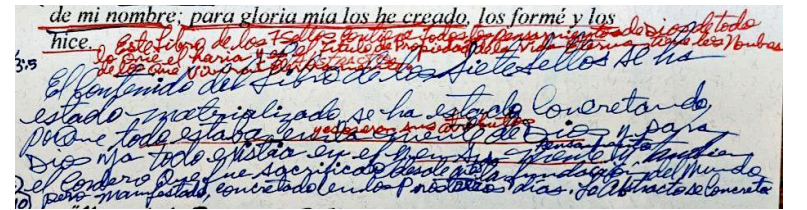 de mi nombre; para gloria mía los he creado, los formé y los
hice. Este Libro de los 7 Sellos contiene todos los pensamientos de Dios, de todo
lo que el haria. Es el Titulo de Propiedad de la Vida Eterna, tiene los Nombres
de los que Vivirán
3:5
El Contenido del Libro de los Siete sellos se ha
estado materializado, se ha estado Concretando,
porque todo estaba en la de Dios y para
y esos eran sus atributos
Dios ya todo existia en el pensamiento
el Cordero que fue Sacrificado desde la fundación del Mundo
pero manifestado, concretado en los Postreros dias. Lo Abstracto se Concreta